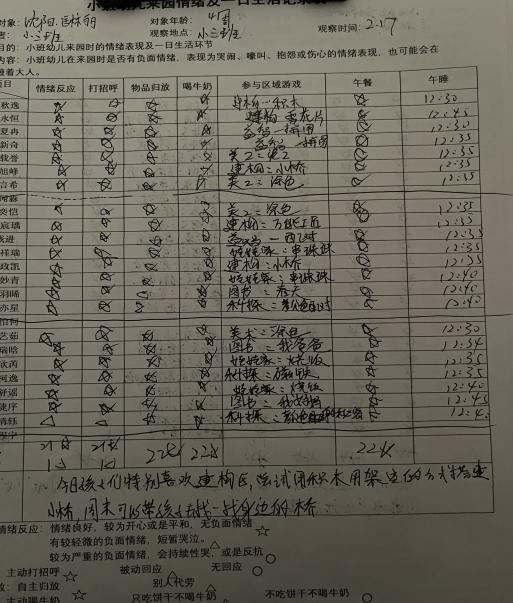 小班幼儿来园情绪及一日生活记录表
对象: 沈阳 年龄: 4岁
小三班 观察地点: 小三班 观察时间: 2.17
目的: 小班幼儿来园时的情绪表现及一日生活环节
内容: 小班幼儿在来园时是否有负面情绪, 表现为哭闹、嚎叫、抱怨或伤心的情绪表现, 也可能会在
着大人。
项目 情绪反应 打招呼 物品归放 喝牛奶 参与区域游戏 午餐 午睡
秋逸 ☆ ☆ ☆ ☆ 建构:积木 ☆ 12:30
永恒 ☆ ☆ ☆ ☆ 建构:雪花片 ☆ 12:45
夏冉 ☆ ☆ ☆ ☆ 益智:拼图 ☆ 12:30
新奇 ☆ ☆ ☆ ☆ 益智:拼图 ☆ 12:35
我誉 ☆ ☆ ☆ ☆ 美工: ☆ 12:35
旭峰 ☆ ☆ ☆ ☆ 建构:小桥 ☆ 12:35
言希 ☆ ☆ ☆ ☆ 美工:涂色 ☆ 12:35
奕恺 ☆ ☆ ☆ ☆ 美工:涂色 ☆ 12:35
宸瑀 ☆ ☆ ☆ ☆ 建构:万能工匠 ☆ 12:35
晟进 ☆ ☆ ☆ ☆ 益智:配对 ☆ 12:35
祥瑞 ☆ ☆ ☆ ☆ 娃娃家:串珠珠 ☆ 12:35
政凯 ☆ ☆ ☆ ☆ 建构:小桥 ☆ 12:35
妙青 ☆ ☆ ☆ ☆ 娃娃家:串珠珠 ☆ 12:40
羽晞 ☆ ☆ ☆ ☆ 图书:春天 ☆ 12:40
亦星 ☆ ☆ ☆ ☆ 科探:颜色配对 ☆ 12:40
艺茹 ☆ ☆ ☆ ☆ 美工:涂色 ☆ 12:30
瑞晗 ☆ ☆ ☆ ☆ 图书:我爸爸 ☆ 12:34
欣芮 ☆ ☆ ☆ ☆ 娃娃家:烧饭 ☆ 12:35
珂逸 ☆ ☆ ☆ ☆ 科探: ☆ 12:35
舒谣 ☆ ☆ ☆ ☆ 娃娃家:烧饭 ☆ 12:40
建序 ☆ ☆ ☆ ☆ 图书:我妈妈 ☆ 12:45
清钰 △ △ ☆ ☆ 科探: ☆
21☆ 21☆ 22☆ 22☆ 22☆
1△ 1△
今日孩子们特别喜欢建构区,尝试用积木用架空的方式搭建
小桥,周末可以带孩子去找一找身边的桥
情绪反应: 情绪良好, 较为开心或是平和, 无负面情绪 ☆
有较轻微的负面情绪, 短暂哭泣。 △
较为严重的负面情绪, 会持续性哭, 或是反抗 ○
主动打招呼 ☆ 被动回应 △ 无回应 ○
放: 自主归放 ☆ 别人代劳 ○
主动喝牛奶 只吃饼干不喝牛奶 不吃饼干不喝牛奶